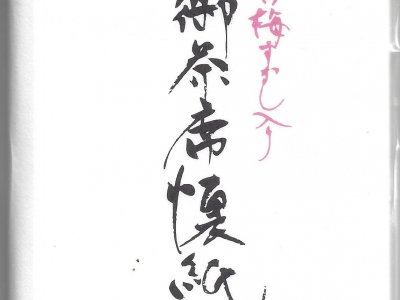 梅すかし入り
御茶席懐紙